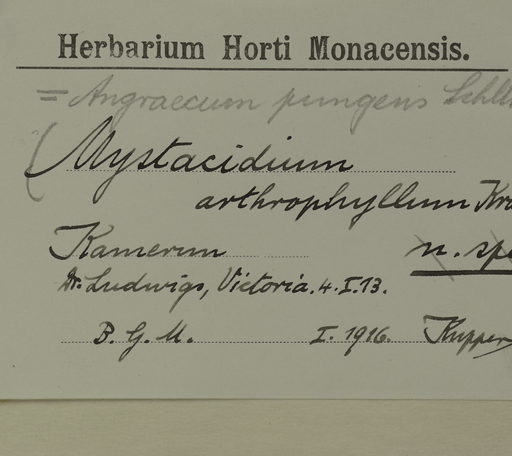 Herbarium Horti Monacensis.
= Angraecum pungens Schltr
( Mystacidium
arthrophyllum Kra
Kamerun n. spe
Dr. Ludwigs, Victoria. 4. I. 13.
B. G. M. I. 1916. Kupper